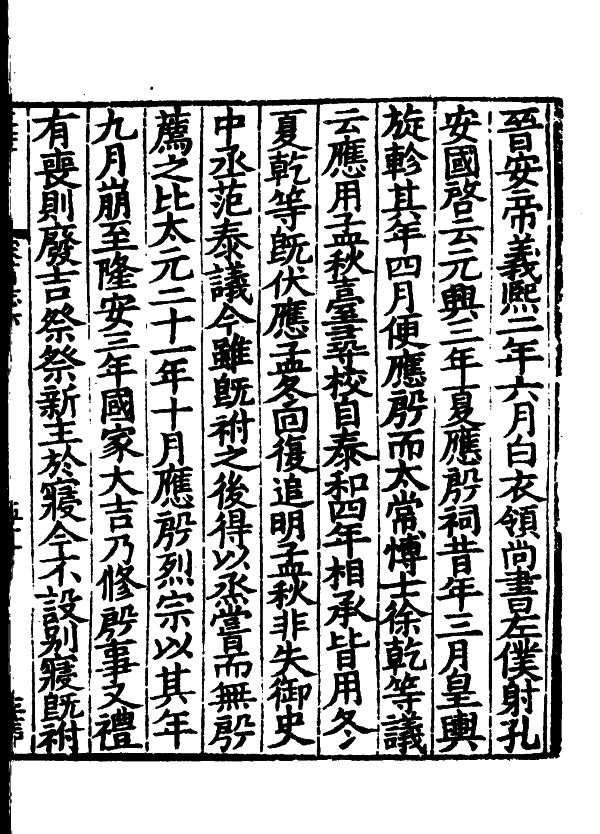 晉安帝義熙二年六月白衣領尚書左僕射孔
安國啓云元興三年夏應殷祠昔年三月皇輿
旋軫其年四月便應殷而太常博士徐乾等議
云應用孟秋臺尋校自泰和四年相承皆用冬
夏乾等旣伏應孟冬回復追明孟秋非失御史
中丞范泰議今雖旣祔之後得以烝嘗而無殷
薦之比太元二十一年十月應殷烈宗以其年
九月崩至隆安三年國家大吉乃修殷事又禮
有喪則廢吉祭祭新主於寢今不設別寢旣祔